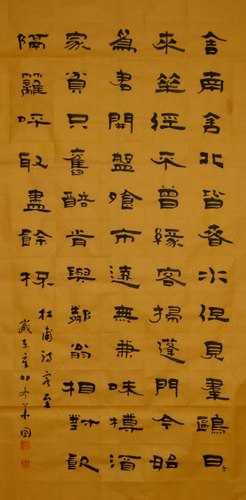 舍南舍北皆春水但見群鷗日
來徑不曾緣客掃蓬門今始
為君開盤飧市遠無兼味樽酒
家貧只舊醅肯與鄰翁相對飲
隔籬呼取盡餘杯
杜甫詩客至
歲在辛卯冬